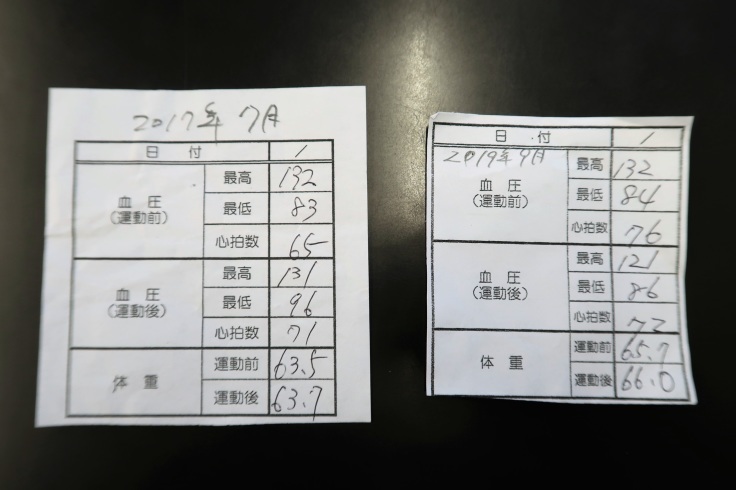 2017年 7月
日 付 /
血 圧
(運動前)
最高 132
最低 83
心拍数 65
血 圧
(運動後)
最高 131
最低 96
心拍数 71
体 重
運動前 63.5
運動後 63.7
日 付 /
2019年9月
血 圧
(運動前)
最高 132
最低 84
心拍数 76
血 圧
(運動後)
最高 121
最低 86
心拍数 72
体 重
運動前 65.7
運動後 66.0